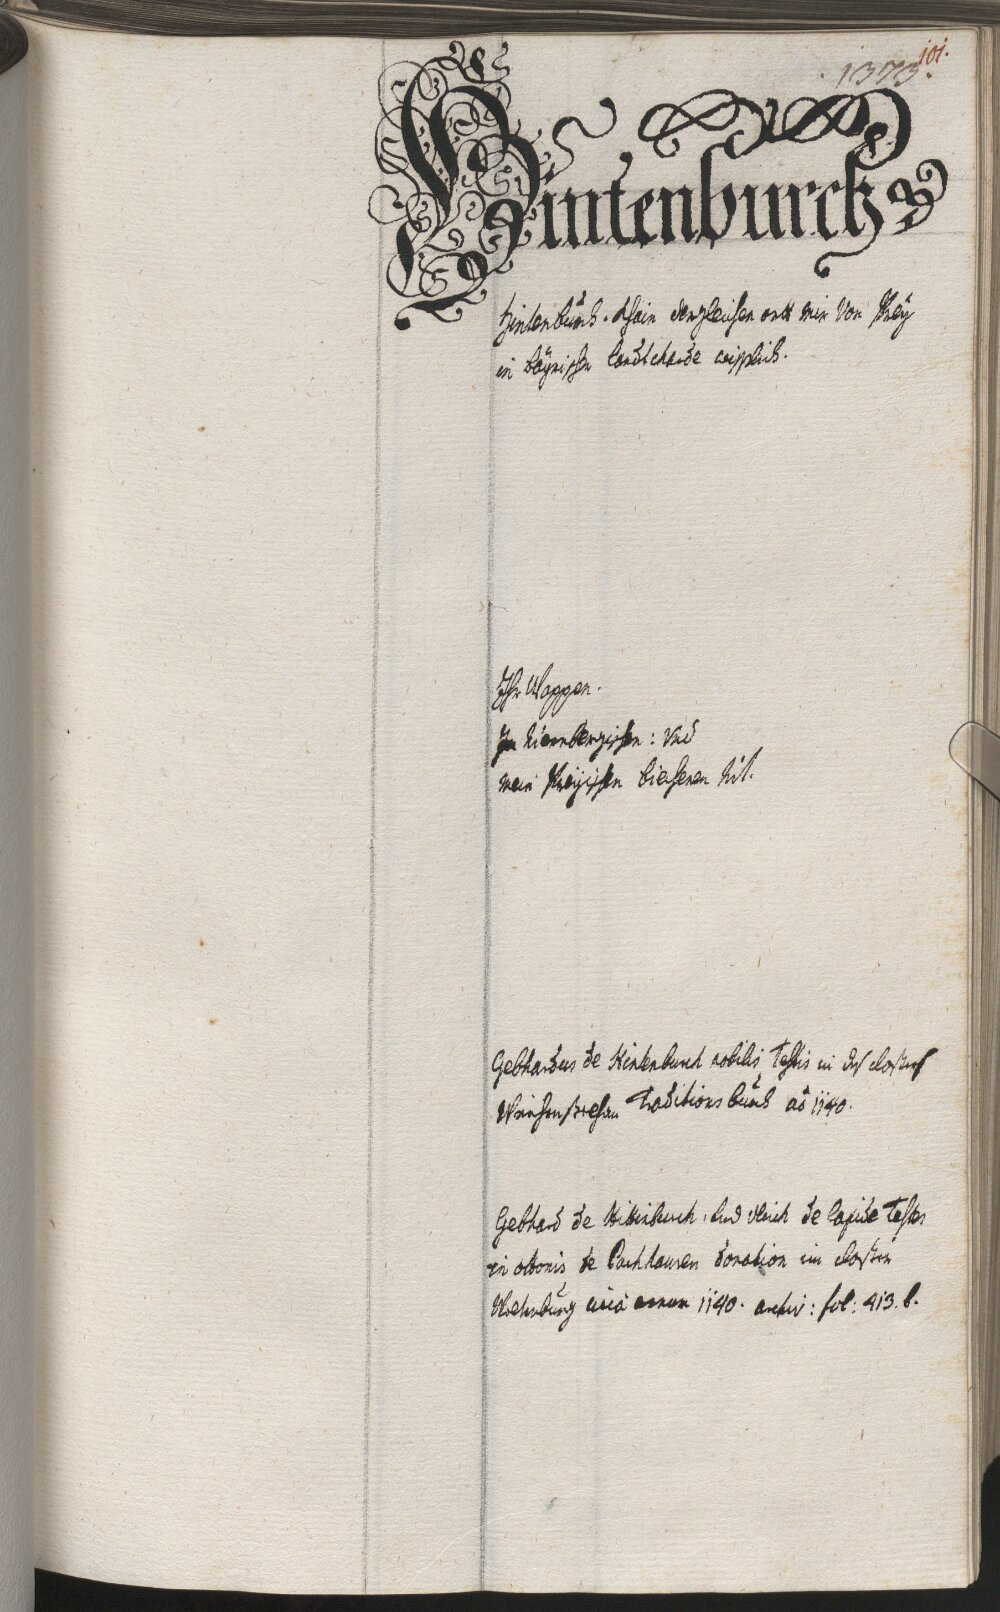 101.
1373.
Hintenburckh
Hintenburch. khain dergleichen ortt mir von Prey
in bayrischer landtcharde wisslich.
Ihr Wappen.
In Niernbergischen: vnd
mein Preyischen biechern nit.
Gebhardus de Hintenburch nobilis testis in des closters
Weichenstephan traditions buech aõ 1140.
Gebhard de Hittinburch. vnd Vlrich de lapide testes
in ottonis de Pachhausen donation im closter
circa annum 1140. archiv: fol: 413. b.